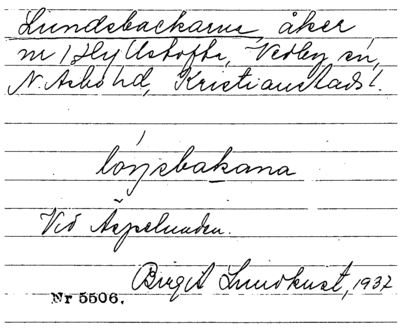 Lundsbackarna, åker
nr 1 Hyllstofta, Vedby sn,
N. Åsbo hd, Kristianstads l.
lóŋsbakana
Vid Äspelunden.
Birgit Lundkvist, 1937
Nr 5506.